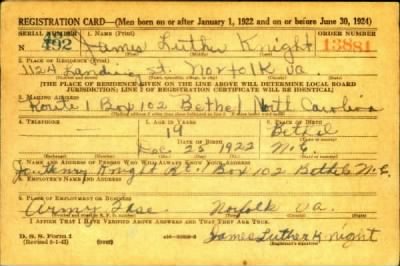 REGISTRATION CARD—(Men born on or after January 1, 1922 and on or before June 30, 1924)
SERIAL NUMBER 1. NAME (Print) ORDER NUMBER
N 492 James Luther Knight 13881
2. PLACE OF RESIDENCE (Print)
1124 Landing St. Norfolk Va.
(THE PLACE OF RESIDENCE GIVEN ON THE LINE ABOVE WILL DETERMINE LOCAL BOARD
JURISDICTION; LINE 2 OF REGISTRATION CERTIFICATE WILL BE IDENTICAL)
3. MAILING ADDRESS
Route 1 Box 102 Bethel North Carolina
4. TELEPHONE 5. AGE IN YEARS
19 Bethel
DATE OF BIRTH
Dec 25 1922 N.C.
NAME AND ADDRESS OF PERSON WHO WILL ALWAYS KNOW YOUR ADDRESS
Henry Knight Rt. 1 Box 102 Bethel N.C.
EMPLOYER'S NAME AND ADDRESS
PLACE OF EMPLOYMENT OR BUSINESS
Army Base Norfolk Va.
I AFFIRM THAT I HAVE VERIFIED ABOVE ANSWERS AND THAT THEY ARE TRUE.
D. S. S. Form 1
James Luther Knight